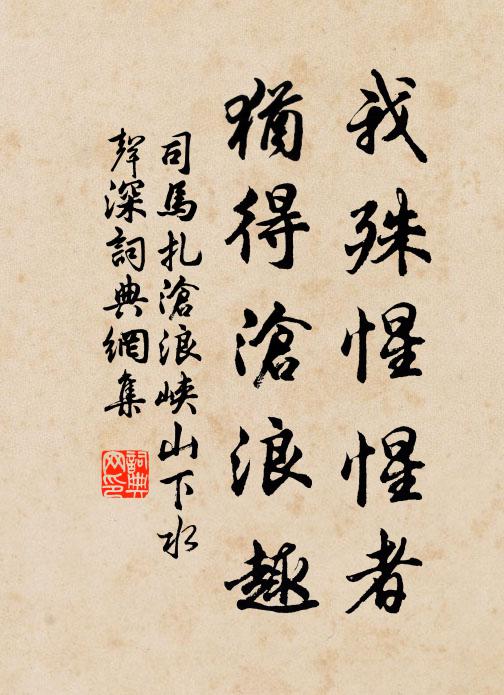 我殊惺惺者
猶得滄浪趣
司馬扎滄浪峽山下水
聲深詞典網集
詞典網印